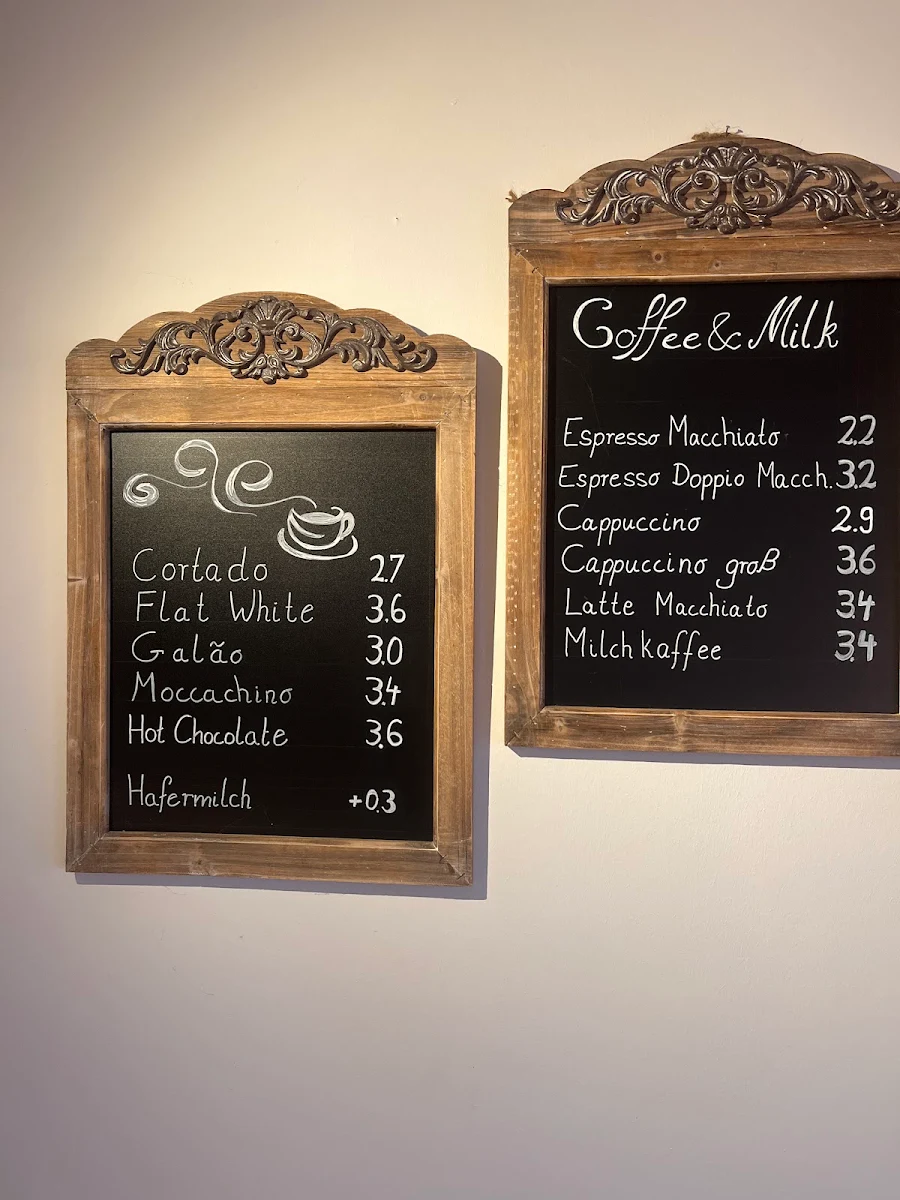 Cortado 2.7
Flat White 3.6
Galão 3.0
Moccachino 3.4
Hot Chocolate 3.6
Hafermilch +0.3
Coffee & Milk
Espresso Macchiato 2.2
Espresso Doppio Macch. 3.2
Cappuccino 2.9
Cappuccino groß 3.6
Latte Macchiato 3.4
Milchkaffee 3.4